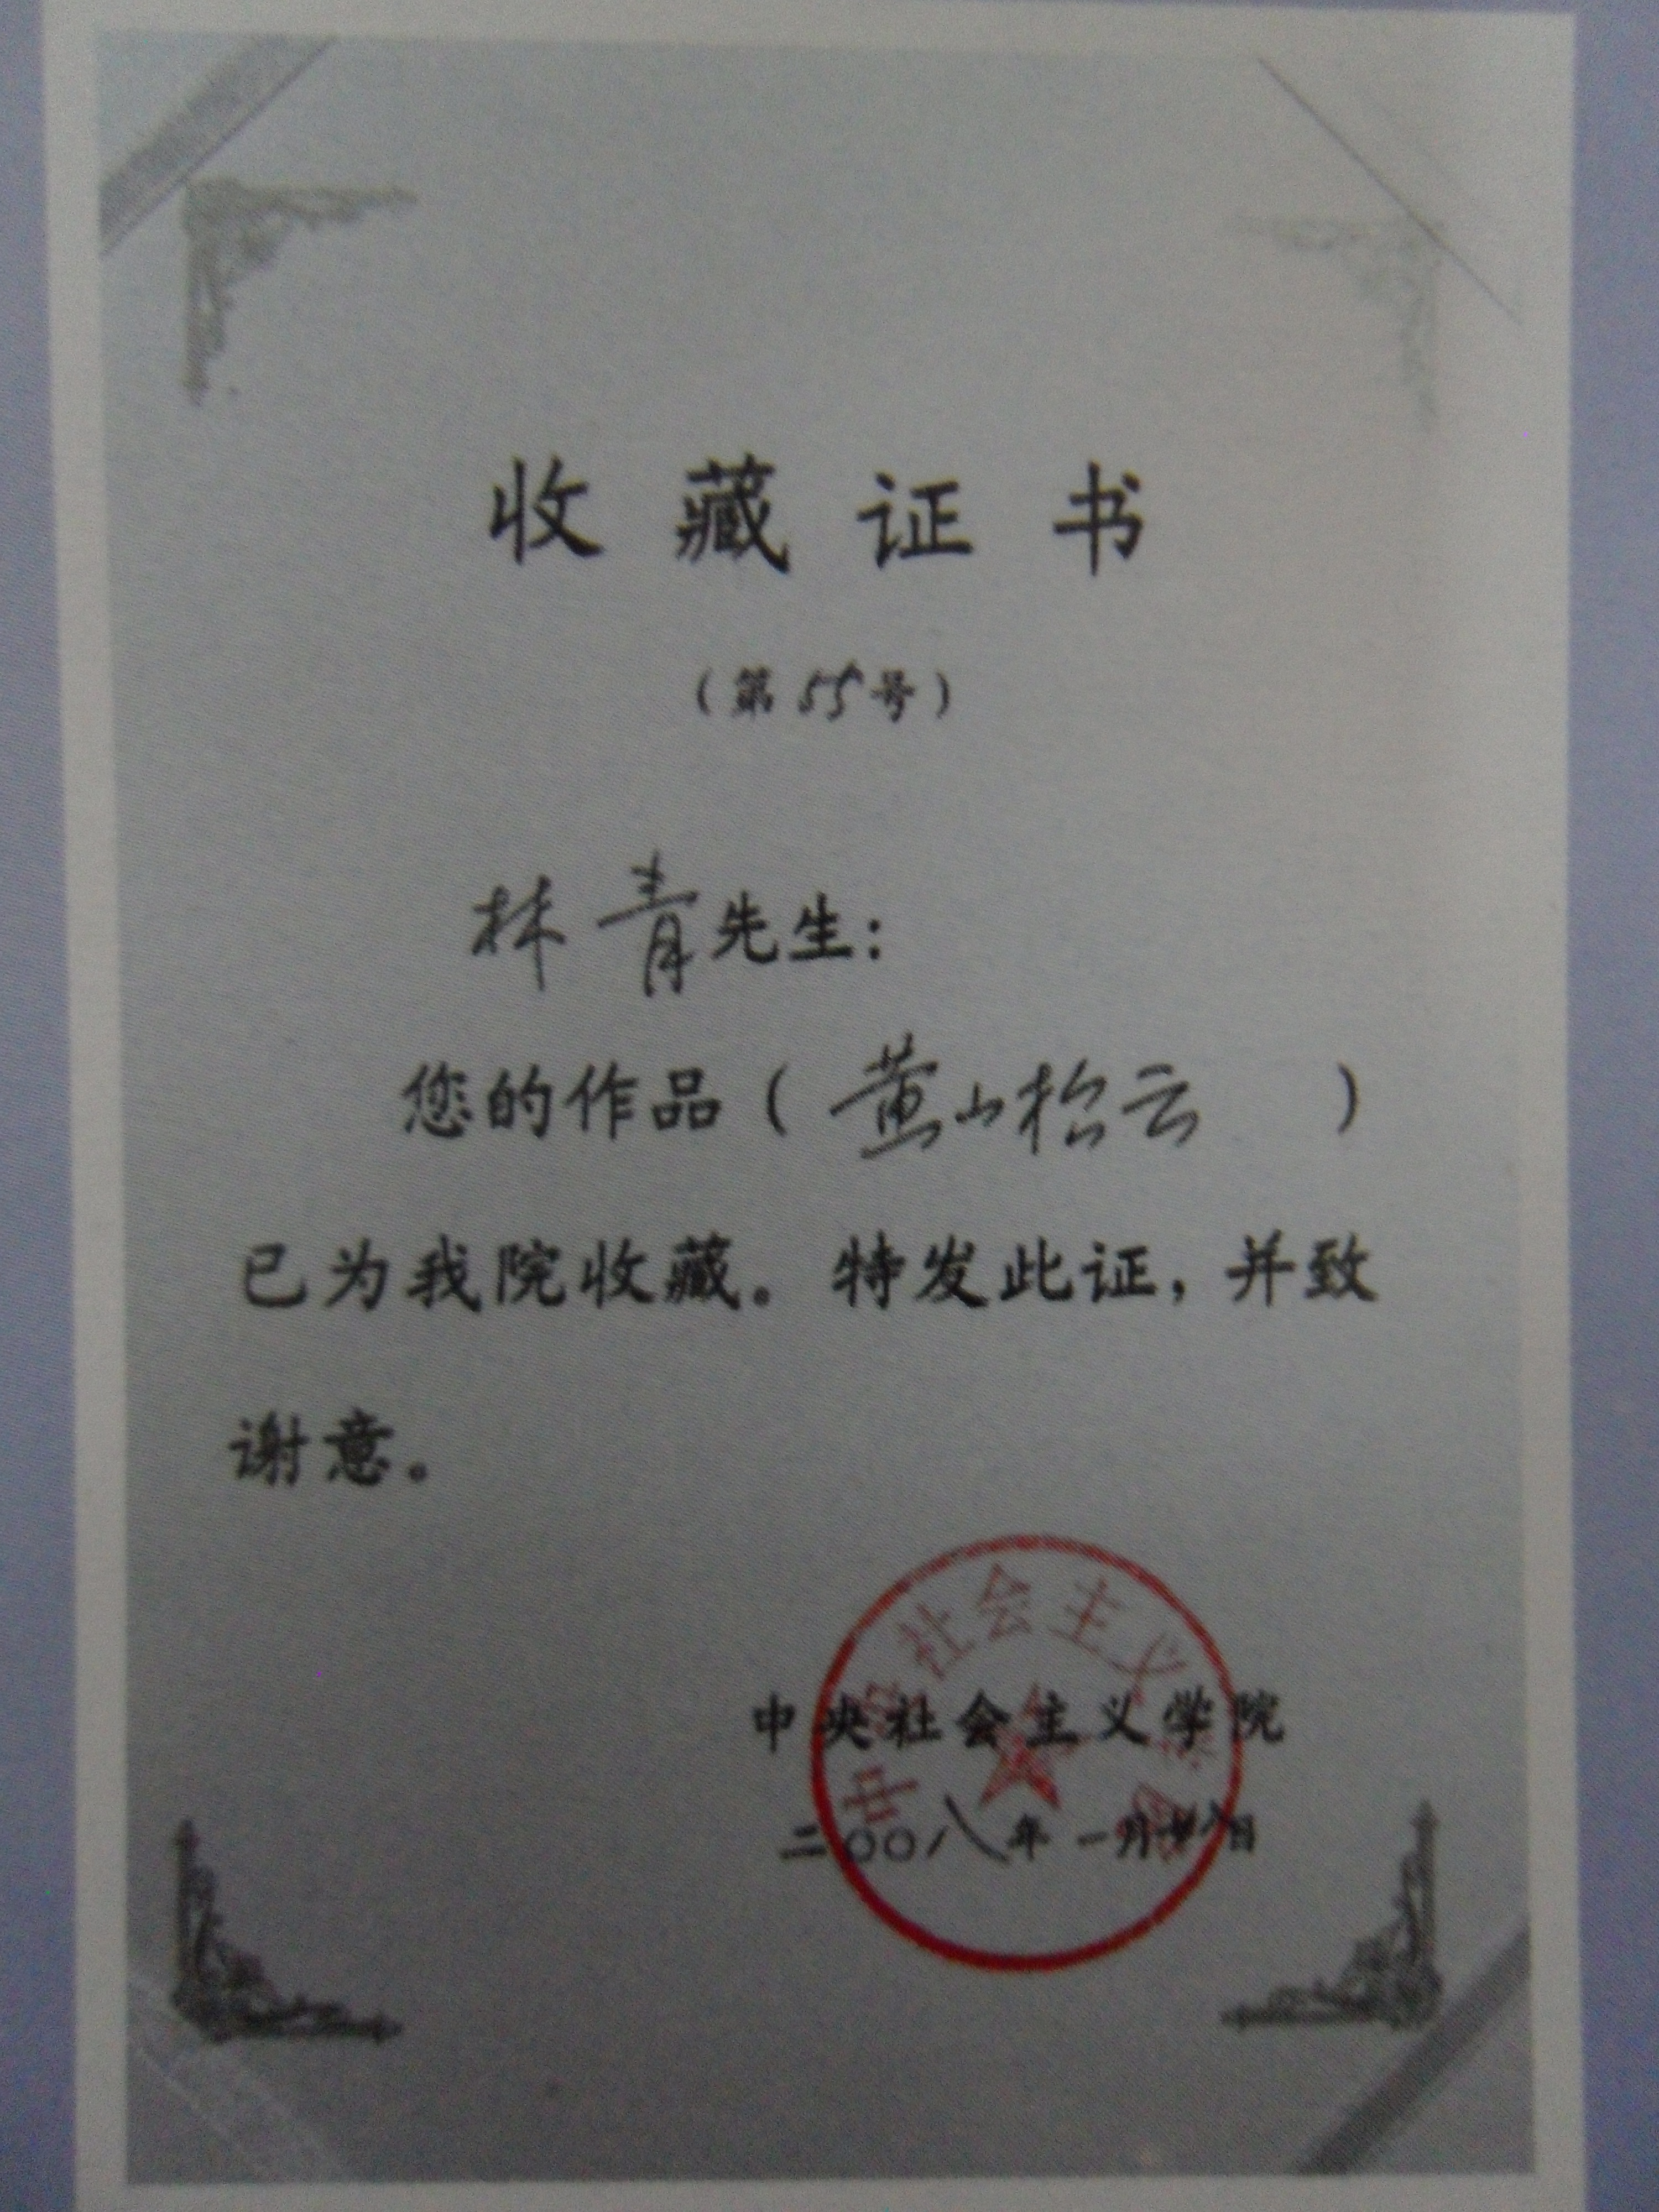 收藏证书
（第55号）
林青先生：
您的作品（黄山松云）
已为我院收藏。特发此证，并致
谢意。
中央社会主义学院
二〇〇八年一月廿八日
社会主义